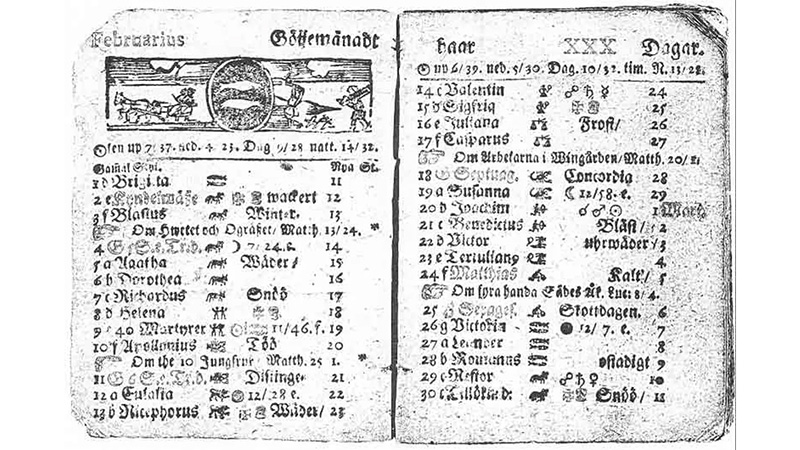 Februarius Göijemånadt
⊙len up 7/37. ned. 4 23. Dag 9/28 natt. 14/32.
Gamal Styl. Nya St.
1 d Brigitta 11
2 e Kyndelmässe wackert 12
3 f Blasius Winter. 13
Om Hwetet och Ogräset/ Matth. 13/24. *
4 G 5 S.e.Tr.d. ☽ 7/24.e. 14
5 a Agatha Wäder/ 15
6 b Dorothea 16
7 c Richardus Snöö 17
8 d Helena 18
9 e 40 Martyrer 11/46.f. 19
10 f Apollonius Töö 20
Om the 10 Jungfrur/ Matth. 25 1. *
11 G 6 S.e.Tr.d. Distinge 21
12 a Eulalia 12/28.e 22
13 b Nicephorus Wäder/ 23
haar XXX Dagar.
⊙ up 6/39. ned. 5/30. Dag. 10/32. tim. N. 13/28.
14 c Valentin ☍ ♄ ☿ 24
15 d Sigfrid 25
16 e Juliana Frost/ 26
17 f Casparus 27
Om Arbetarna i Wingården/ Matth. 20/1.
18 G Septuag. Concordig 28
19 a Susanna ☾ 12/58. e. 29
20 b Joachim ☌ ♂ ⊙ 1 Mart.
21 c Benedictus Bläst/ 2
22 d Victor uhrwäder/ 3
23 e Tertuliany 4
24 f Matthias Kalt/ 5
Om fyra handa Sädes Åk. Luc: 8/4.
25 G Sexages. Skottdagen. 6
26 g Victorin ● 12/7. e. 7
27 a Leander 8
28 b Romanus ostadigt 9
29 c Nestor ☍ ♄ ♀ 10
30 c Snöö/ 11